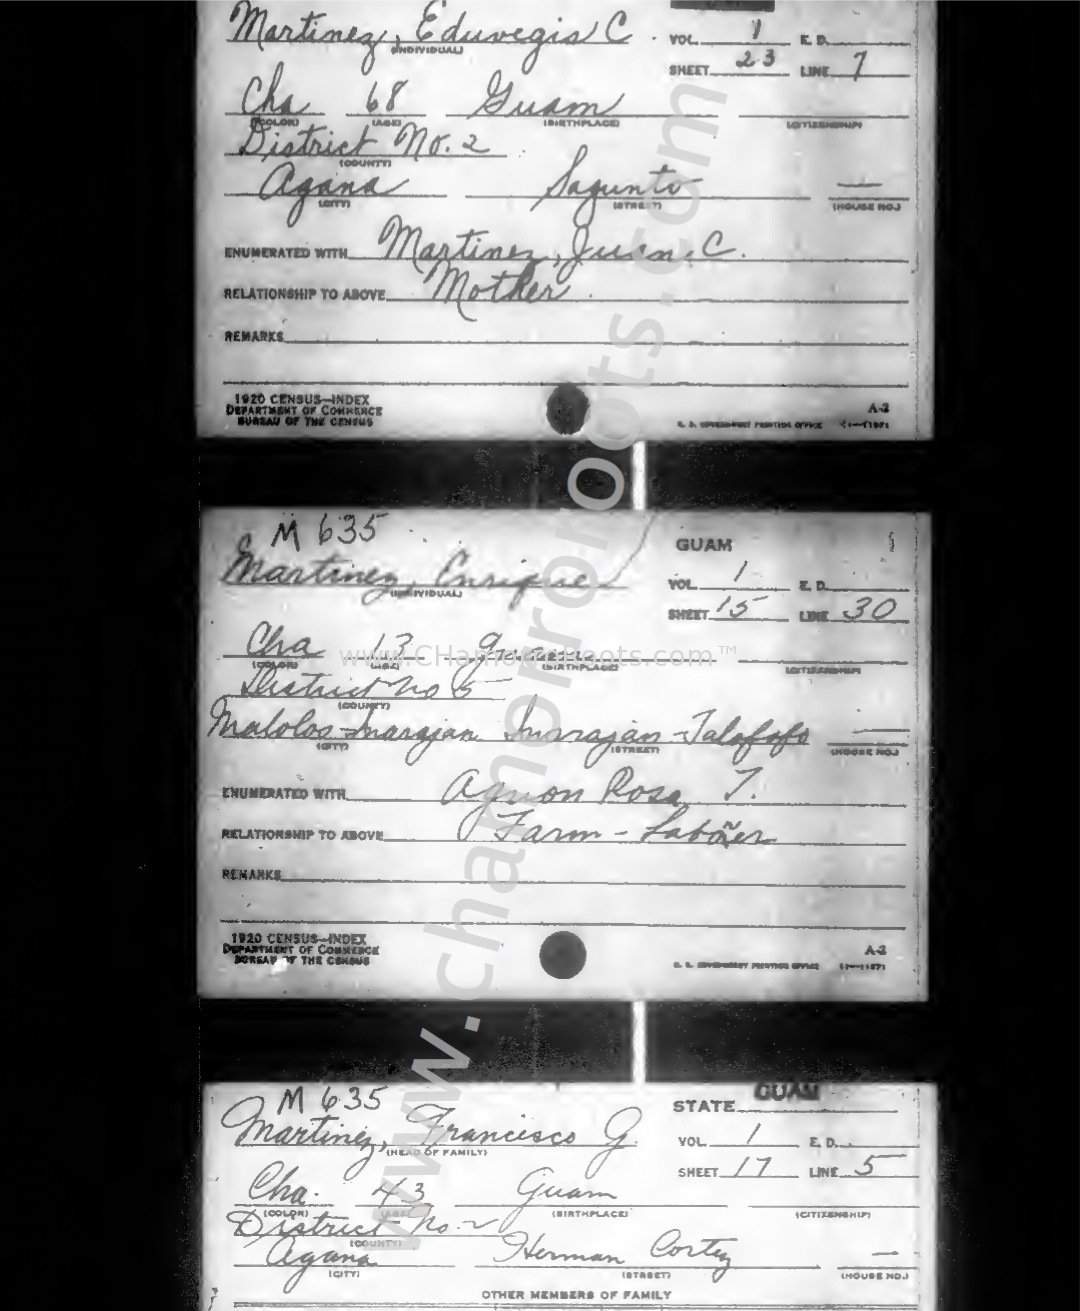 Martinez, Eduvegis C.
(INDIVIDUAL)
VOL. 1 E. D.
SHEET 23 LINE 7
Cha 68 Guam
(COLOR) (AGE) (BIRTHPLACE) (CITIZENSHIP)
District No. 2
(COUNTY)
Agana Sagunto —
(CITY) (STREET) (HOUSE NO.)
ENUMERATED WITH Martinez, Juan C.
RELATIONSHIP TO ABOVE Mother
REMARKS
1920 CENSUS—INDEX
DEPARTMENT OF COMMERCE
BUREAU OF THE CENSUS
A-2
U. S. GOVERNMENT PRINTING OFFICE
M 635
GUAM
Martinez, Enrique
(INDIVIDUAL)
VOL. 1 E. D.
SHEET 15 LINE 30
Cha 13 Guam
(COLOR) (AGE) (BIRTHPLACE) (CITIZENSHIP)
District No 5
(COUNTY)
Malolos-Inarajan Inarajan-Talofofo —
(CITY) (STREET) (HOUSE NO.)
ENUMERATED WITH Aguon Rosa T.
RELATIONSHIP TO ABOVE Farm - Laborer
REMARKS
1920 CENSUS—INDEX
DEPARTMENT OF COMMERCE
BUREAU OF THE CENSUS
A-2
U. S. GOVERNMENT PRINTING OFFICE
M 635
STATE GUAM
Martinez, Francisco G.
(HEAD OF FAMILY)
VOL. 1 E. D.
SHEET 17 LINE 5
Cha. 43 Guam
(COLOR) (AGE) (BIRTHPLACE) (CITIZENSHIP)
District No. 2
(COUNTY)
Agana Herman Cortez —
(CITY) (STREET) (HOUSE NO.)
OTHER MEMBERS OF FAMILY
www.chamorroroots.com
www.CHamoruRoots.com™